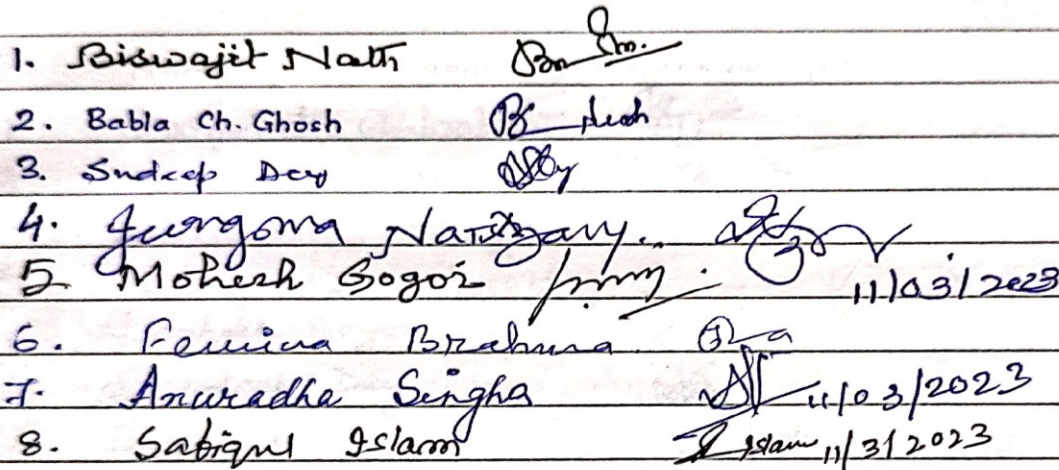 1. Biswajit Nath
2. Babla Ch. Ghosh
3. Sudeep Dey
4. Jwngsma Narzary.
5. Mohesh Gogoi 11/03/2023
6. Femina Brahma
7. Anuradha Singha 11/03/2023
8. Sabiqul Islam Islam 11/3/2023